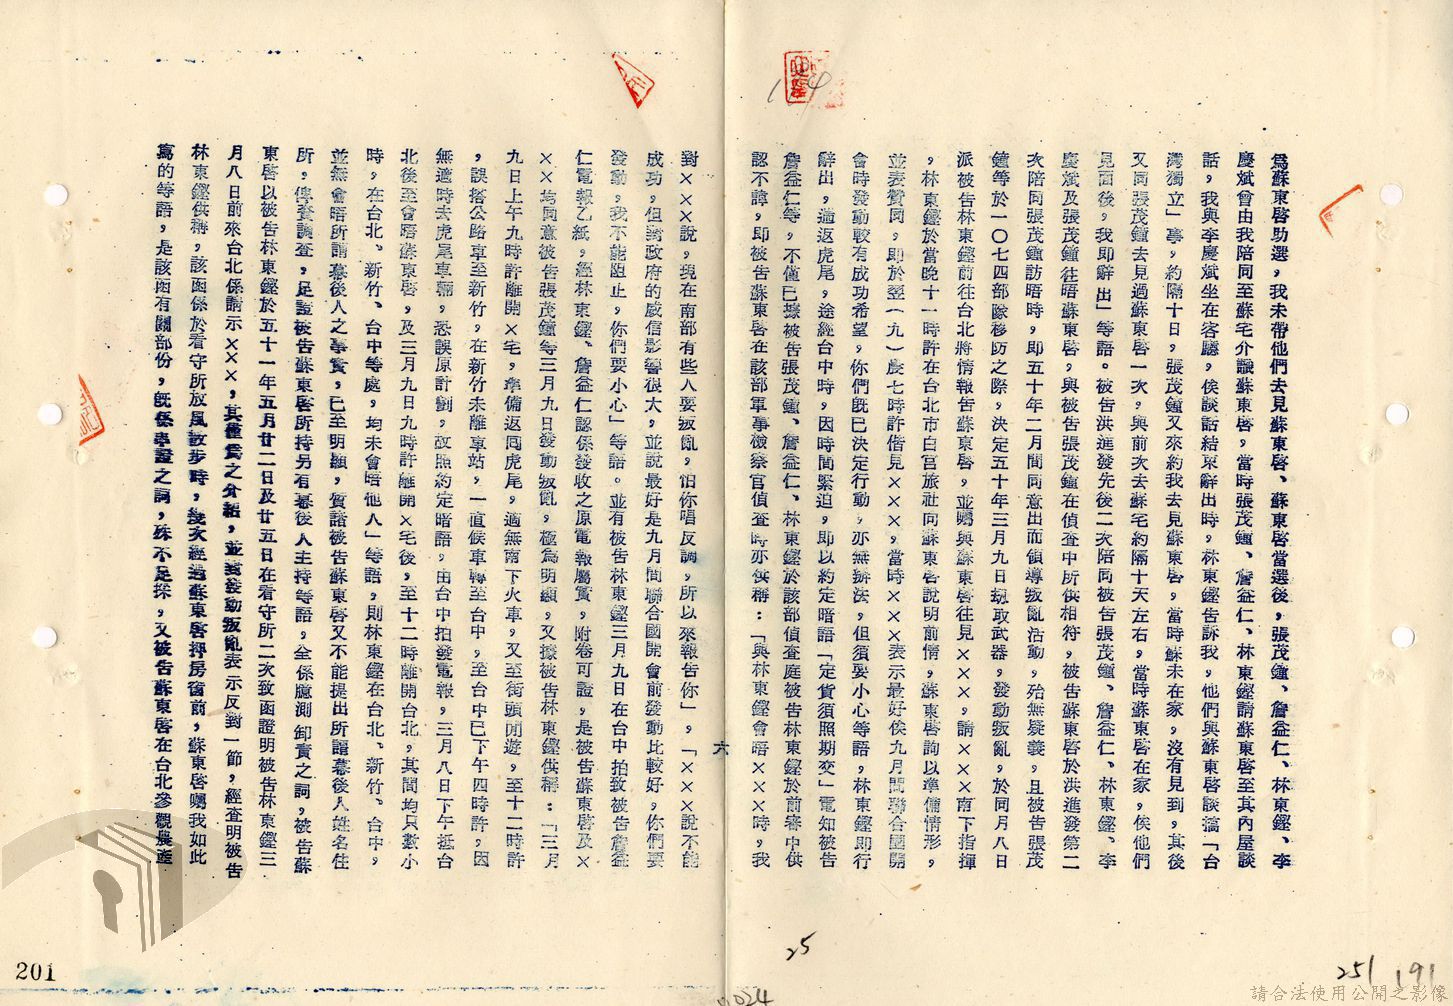 為蘇東啓助選，我未帶他們去見蘇東啓、蘇東啓當選後，張茂鐘、詹益仁、林東鏗、李
慶斌曾由我陪同至蘇宅介識蘇東啓，當時張茂鐘、詹益仁、林東鏗請蘇東啓至其內屋談
話，我與李慶斌坐在客廳，俟談話結束辭出時，林東鏗告訴我，他們與蘇東啓談搞「台
灣獨立」事，約隔十日，張茂鐘又來約我去見蘇東啓，當時蘇未在家，沒有見到，其後
又同張茂鐘去見過蘇東啓一次，與前次去蘇宅約隔十天左右，當時蘇東啓在家，俟他們
見面後，我即辭出」等語。被告洪進發先後二次陪同被告張茂鐘、詹益仁、林東鏗、李
慶斌及張茂鐘往晤蘇東啓，與被告張茂鐘在偵查中所供相符，被告蘇東啓於洪進發第二
次陪同張茂鐘訪晤時，即五十年二月間同意出而領導叛亂活動，殆無疑義，且被告張茂
鐘等於一〇七四部隊移防之際，決定五十年三月九日刧取武器，發動叛亂，於同月八日
派被告林東鏗前往台北將情報告蘇東啓，並囑與蘇東啓往見×××，請×××南下指揮
，林東鏗於當晚十一時許在台北市白宮旅社向蘇東啓說明前情，蘇東啓詢以準備情形，
並表贊同，即於翌（九）晨七時許偕見×××，當時×××表示最好俟九月間聯合國開
會時發動較有成功希望，你們既已決定行動，亦無辦法，但須要小心等語，林東鏗即行
辭出，遄返虎尾，途經台中時，因時間緊迫，即以約定暗語「定貨須照期交」電知被告
詹益仁等，不僅已據被告張茂鐘、詹益仁、林東鏗於該部偵查庭被告林東鏗於前審中供
認不諱，即被告蘇東啓在該部軍事檢察官偵查時亦供稱：「與林東鏗會晤×××時，我
六
對×××說，現在南部有些人要叛亂，怕你唱反調，所以來報告你」，「×××說不能
成功，但對政府的威信影響很大，並說最好是九月間聯合國開會前發動比較好，你們要
發動，我不能阻止，你們要小心」等語。並有被告林東鏗三月九日在台中拍致被告詹益
仁電報乙紙，經林東鏗、詹益仁認係發收之原電報屬實，附卷可證，是被告蘇東啓及×
××均同意被告張茂鐘等三月九日發動叛亂，極為明顯，又據被告林東鏗供稱：「三月
九日上午九時許離開×宅，準備返回虎尾，適無南下火車，又至街頭閒遊，至十二時許
，誤搭公路車至新竹，在新竹未離車站，一直候車轉至台中，至台中已下午四時許，因
無適時去虎尾車輛，恐誤原計劃，故照約定暗語，由台中拍發電報，三月八日下午抵台
北後至會晤蘇東啓，及三月九日九時許離開×宅後，至十二時離開台北，其間均只數小
時，在台北、新竹、台中等處，均未會晤他人」等語，則林東鏗在台北、新竹、台中，
並無會晤所謂幕後人之事實，已至明顯，質諸被告蘇東啓又不能提出所謂幕後人姓名住
所，俾資調查，足證被告蘇東啓所持另有幕後人主持等語，全係臆測卸責之詞，被告蘇
東啓以被告林東鏗於五十一年五月廿二日及廿五日在看守所二次致函證明被告林東鏗三
月八日前來台北係請示×××，其僅為之介紹，並對發動叛亂表示反對一節，經查明被告
林東鏗供稱，該函係於看守所放風散步時，幾次經過蘇東啓押房窗前，蘇東啓囑我如此
寫的等語，是該函有關部份，既係串證之詞，殊不足採，又被告蘇東啓在台北參觀農產
25
251 191
201
0024
請合法使用公開之影像